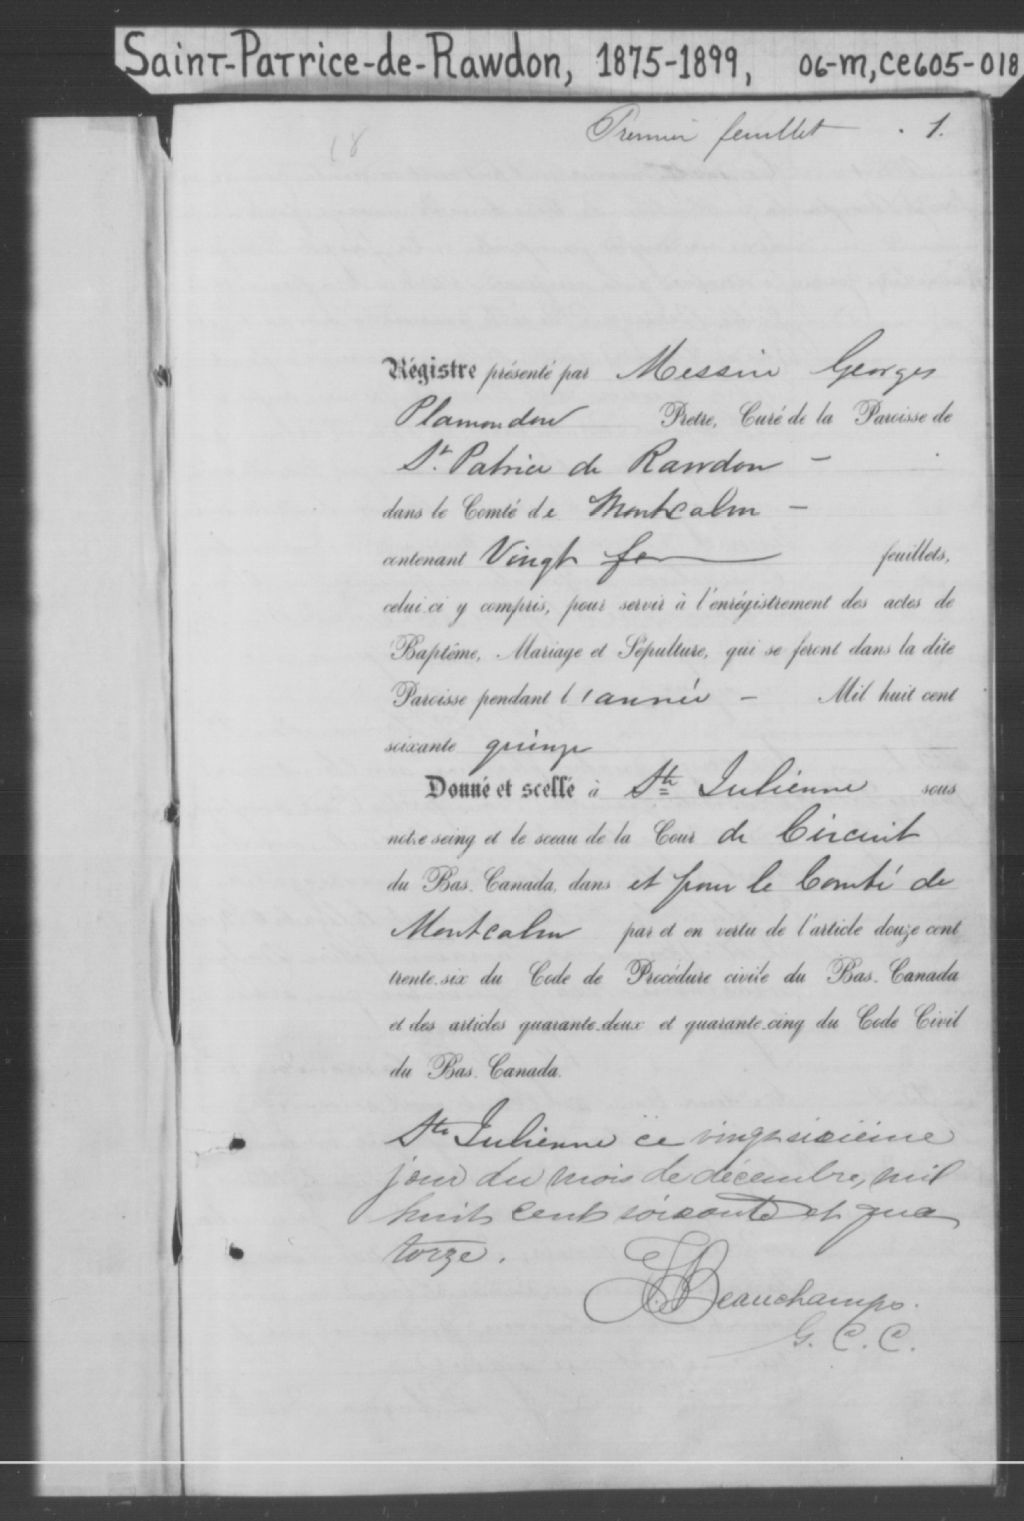 Saint-Patrice-de-Rawdon, 1875-1899, 06-m, ce605-018
Premier feuillet . 1.
Régistre présenté par Messire Georges
Plamondon Pretre, Curé de la Paroisse de
St. Patrice de Rawdon –
dans le Comté de Montcalm –
contenant Vingt feuillets,
celui-ci y compris, pour servir à l'enrégistrement des actes de
Baptême, Mariage et Sépulture, qui se feront dans la dite
Paroisse pendant l'année – Mil huit cent
soixante quinze
Donné et scellé à Ste Julienne sous
notre seing et le sceau de la Cour de Circuit
du Bas-Canada, dans et pour le Comté de
Montcalm par et en vertu de l'article douze cent
trente-six du Code de Procédure civile du Bas-Canada
et des articles quarante-deux et quarante-cinq du Code Civil
du Bas-Canada.
Ste Julienne ce vingt sixième
jour du mois de décembre, mil
huit cent soixante et qua
torze.
J. Beauchamps.
G. C. C.